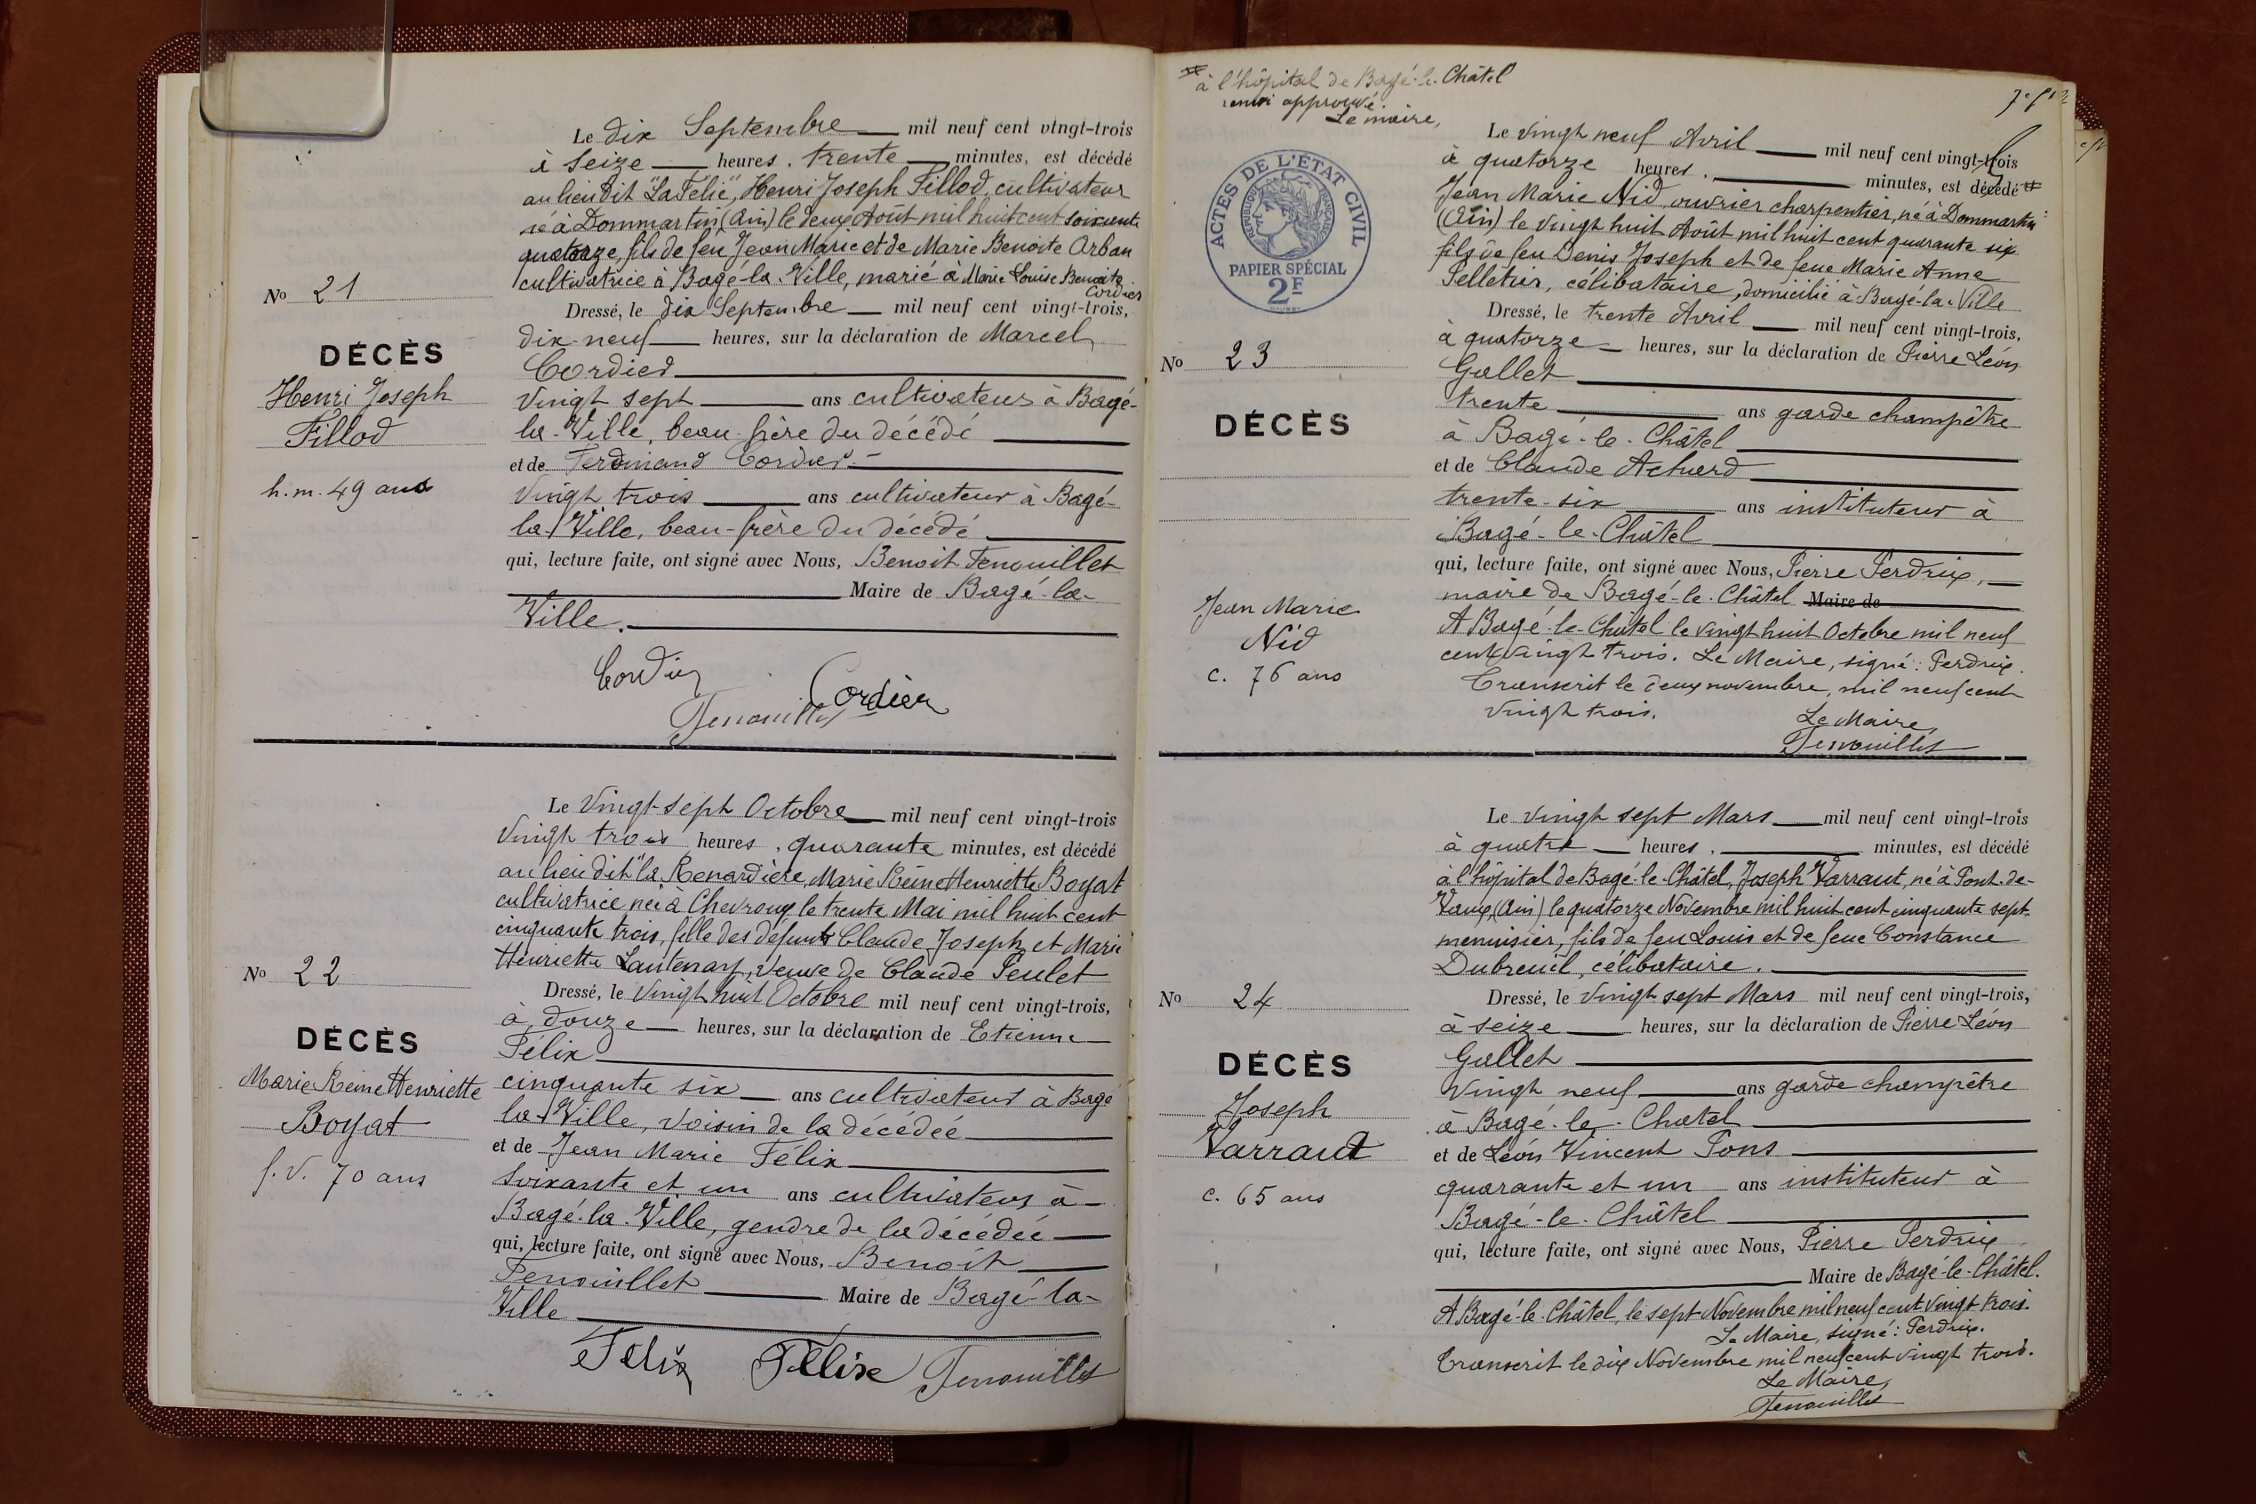 Le dix Septembre mil neuf cent vingt-trois
à seize heures, trente minutes, est décédé
au lieu dit "La Félie", Henri Joseph Fillod, cultivateur
né à Dommartin (Ain) le deux Août mil huit cent soixante
quatorze, fils de feu Jean Marie et de Marie Benoite Orban
cultivatrice à Bagé-la-Ville, marié à Marie Louise Benoite
Cordier
No 21
Dressé, le dix Septembre mil neuf cent vingt-trois,
dix-neuf heures, sur la déclaration de Marcel
DÉCÈS
Cordier
Henri Joseph
Fillod
h.m. 49 ans
vingt sept ans cultivateur à Bagé-
la-Ville, beau-frère du décédé
et de Ferdinand Cordier
vingt trois ans cultivateur à Bagé-
la-Ville, beau-frère du décédé
qui, lecture faite, ont signé avec Nous, Benoit Fenouillet
Maire de Bagé-la-
Ville.
Cordier
Cordier
Fenouillet
Le vingt-sept Octobre mil neuf cent vingt-trois
vingt trois heures, quarante minutes, est décédé
au lieu dit "la Renardière, Marie Reine Henriette Boyat
cultivatrice née à Chevroux le trente Mai mil huit cent
cinquante trois, fille des défunts Claude Joseph et Marie
Henriette veuve de Claude Peulet
No 22
Dressé, le vingt huit Octobre mil neuf cent vingt-trois,
à douze heures, sur la déclaration de Etienne
DÉCÈS
Félix
Marie Reine Henriette
Boyat
f.v. 70 ans
cinquante six ans cultivateur à Bagé
la-Ville, voisin de la décédée
et de Jean Marie Félix
soixante et un ans cultivateur à
Bagé-la-Ville, gendre de la décédée
qui, lecture faite, ont signé avec Nous, Benoit
Fenouillet Maire de Bagé-la-
Ville
Félix Félix Fenouillet
à l'hôpital de Bagé-le-Châtel
renvoi approuvé.
Le maire,
ACTES DE L'ETAT CIVIL
REPUBLIQUE FRANÇAISE
PAPIER SPÉCIAL
2F
Le vingt neuf Avril mil neuf cent vingt-trois
à quatorze heures, minutes, est décédé
Jean Marie Nid, ouvrier charpentier, né à Dommartin
(Ain) le vingt huit Août mil huit cent quarante six
fils de feu Denis Joseph et de feue Marie Anne
Pelletier, célibataire, domicilié à Bagé-la-Ville
Dressé, le trente Avril mil neuf cent vingt-trois,
à quatorze heures, sur la déclaration de Pierre Léon
No 23
Gallet
DÉCÈS
trente ans garde champêtre
à Bagé-le-Châtel
et de Claude Achard
trente-six ans instituteur à
Bagé-le-Châtel
qui, lecture faite, ont signé avec Nous, Pierre Perdrix,
maire de Bagé-le-Châtel Maire de
Jean Marie
Nid
c. 76 ans
A Bagé-le-Châtel le vingt huit Octobre mil neuf
cent vingt trois. Le Maire, signé: Perdrix.
Transcrit le deux novembre, mil neuf cent
vingt trois.
Le Maire,
Fenouillet
Le vingt sept Mars mil neuf cent vingt-trois
à quatre heures, minutes, est décédé
à l'hôpital de Bagé-le-Châtel, Joseph Varraut, né à Pont-de-
Vaux, (Ain) le quatorze Novembre mil huit cent cinquante sept.
menuisier, fils de feu Louis et de feue Constance
Dubreuil, célibataire.
No 24
Dressé, le vingt sept Mars mil neuf cent vingt-trois,
à seize heures, sur la déclaration de Pierre Léon
DÉCÈS
Gallet
Joseph
Varraut
c. 65 ans
vingt neuf ans garde champêtre
à Bagé-le-Chatel
et de Léon Vincent Pons
quarante et un ans instituteur à
Bagé-le-Châtel
qui, lecture faite, ont signé avec Nous, Pierre Perdrix
Maire de Bagé-le-Châtel.
A Bagé-le-Châtel, le sept Novembre mil neuf cent vingt trois.
Le Maire, signé: Perdrix.
Transcrit le dix Novembre mil neuf cent vingt trois.
Le Maire,
Fenouillet